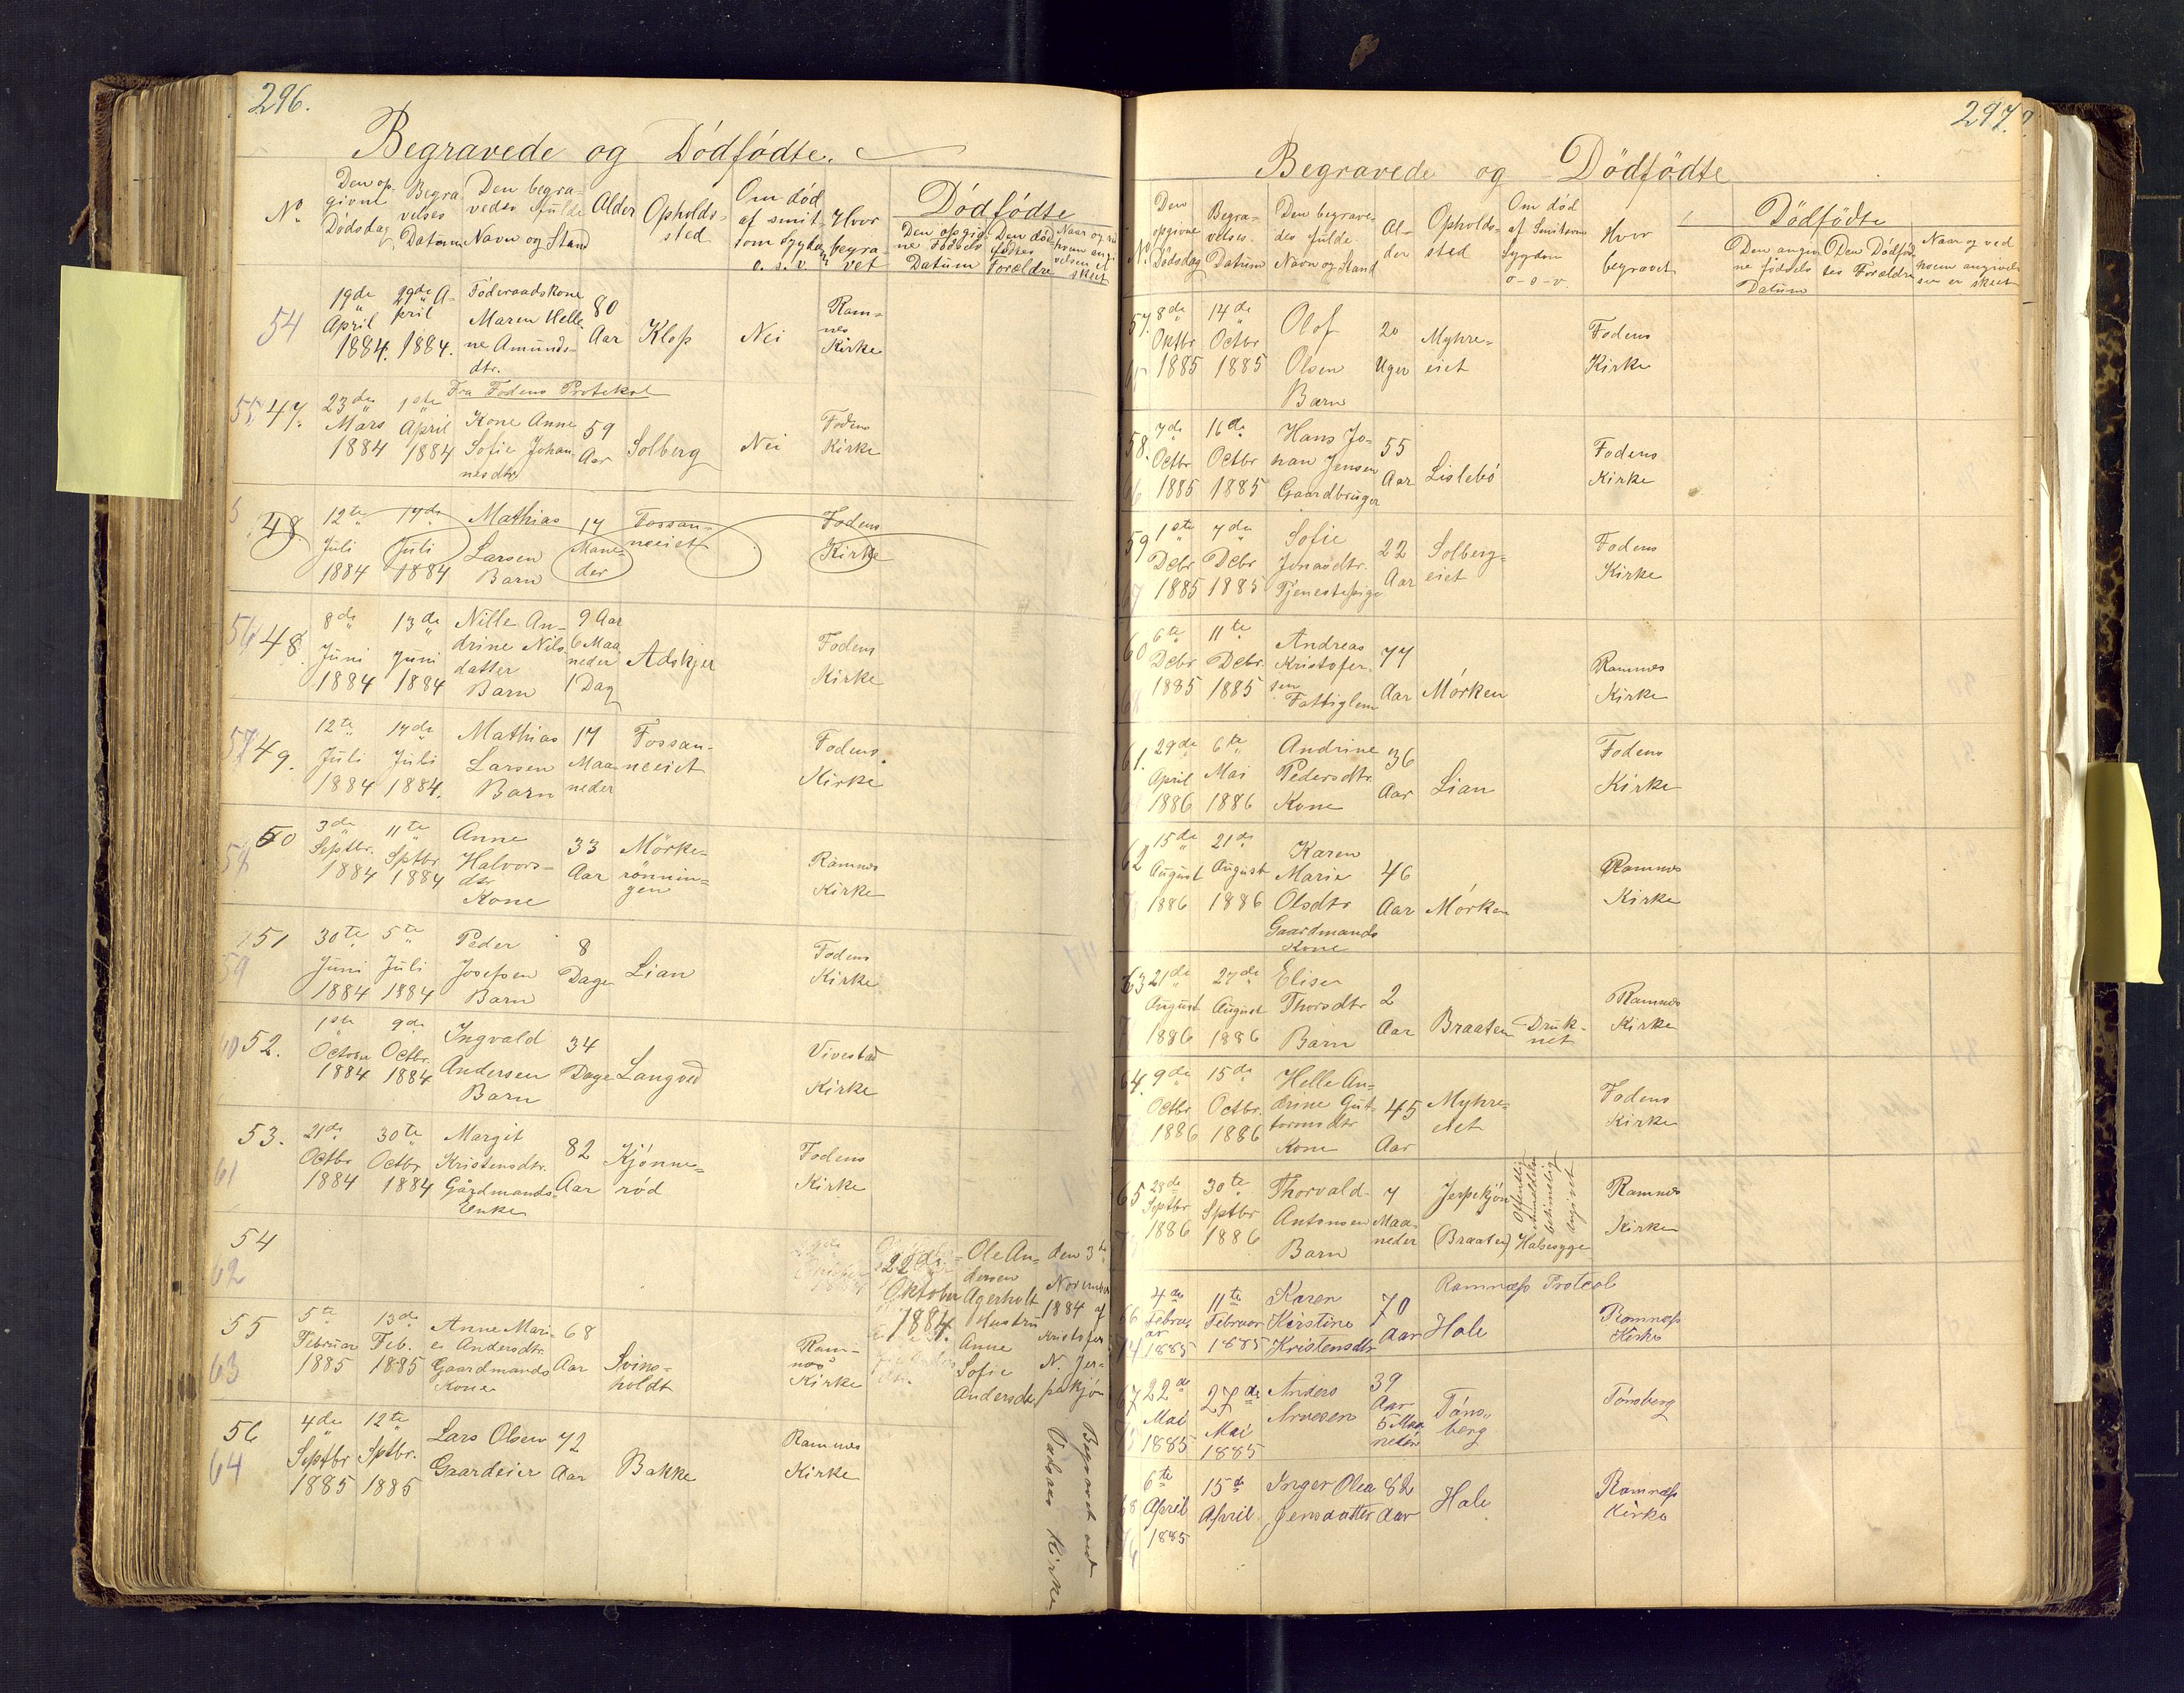 296.
Begravede og Dödfödte.
No
Den op-
givne
Dödsdag
Begra-
velses
Datum
Den begra-
vedes fulde
Navn og Stand
Alder
Opholds-
sted
Om död
af smit-
som Sygdom
o. s. v
Hvor
begra-
vet
Dödfödte
Datum
Forældre
54
19de
April
1884.
29de A-
pril
1884.
Föderaadskone
Maren Helle-
ne Amunds-
dtr.
80
Aar
Klop
Nei
Ram-
nes
Kirke
Fra Fodens Protekol
55 47.
23de
Mars
1884
1ste
April
1884
Kone Anne
Sofie Johan-
nesdtr
59
Aar
Solberg
Nei
Fodens
Kirke
48
12te
Juli
1884
17de
Juli
1884
Mathias
Larsen
Barn
17
Mane-
der
Fossan-
neeiet
Fodens
Kirke
56 48.
8de
Juni
1884
13de
Juni
1884
Nille An-
drine Nils-
datter
Barn
9 Aar
6 Maa-
neder
1 Dag
Adskjer
Fodens
Kirke
57 49.
12te
Juli
1884
17de
Juli
1884.
Mathias
Larsen
Barn
17
Maa-
neder
Fossan-
neeiet
Fodens
Kirke
58 50
3de
Septbr.
1884
11te
Sptbr
1884
Anne
Halvors-
dtr
Kone
33
Aar
Mörke-
rönnin-
gen
Ramnes
Kirke
51
59
30te
Juni
1884
5te
Juli
1884
Peder
Josefsen
Barn
8
Dage
Lian
Fodens
Kirke
60 52.
1ste
1884
9de
Octbr.
1884
Ingvald
Andersen
Barn
34
Dage
Langved
Vivestad
Kirke
53.
61
21de
Octbr
1884
30te
Octbr
1884
Margit
Kristensdtr.
Gårdmands-
Enke
82
Aar
Kjönne-
röd
Fodens
Kirke
54
62
22de
Oktober
1884
Ole An-
dersen
Agerholt
Hustru
Anne
Sofie
den 3te
November
1884 af
Kristofer
N. Jer-
Begravet ved
Kirke
55
63
5te
Februar
1885
13de
Feb.
1885
Anne Mari-
e Andersdtr.
Gaardmands
Kone
68
Aar
Svins-
holdt
Ram-
næs
Kirke
56
64
4de
Septbr
1885
12te
Sptbr.
1885
Lars Olsen
Gaardeier
72
Aar
Bakke
Ramnes
Kirke
297.
Begravede og Dödfödte
No
Den
opgivne
Dödsdag
Begra-
velses.
Datum
Den begrave-
des fulde
Navn og Stand
Al-
der
Opholds-
sted
Om död
af Smitsom
Sygdom
o-s-v.
Hvor
begravet
Dödfödte
Den angiv-
ne födsels
Datum
Den Dödföd-
tes Forældre
Naar og ved
hvem angivel-
sen er skeet
57.
8de
Oktbr
1885
14de
Octbr
1885
Olof
Olsen
Barn
20
Uger
Myhre-
eiet
Fodens
Kirke
58.
7de
Octbr
1885
16de
Octbr
1885
Hans Jo-
han Jensen
Gaardbruger
55
Aar
Lislebö
Fodens
Kirke
59
1ste
Debr
1885
7de
Debr
1885
Sofie
Jonasdtr.
Tjenestepige
22
Aar
Solberg-
eiet
Fodens
Kirke
60
6te
Debr
1885
11te
Debr.
1885
Andreas
Kristofer-
sen
Fattiglem
77
Aar
Mörken
Ramnes
Kirke
61.
29de
April
1886
6te
Mai
1886
Andrine
Pedersdtr.
Kone
36
Aar
Lian
Fodens
Kirke
62
15de
August
1886
21de
August
1886
Karen
Marie
Olsdtr
Gaardmands
Kone
46
Aar
Mörken
Ramnes
Kirke
63
21de
August
1886
27de
August
1886
Elise
Thorsdtr
Barn
2
Aar
Braaten
Druk-
net
Ramnes
Kirke
64.
9de
Octbr
1886
15de
Octbr.
1886
Helle An-
drine Gut-
tormsdtr
Kone
45
Aar
Myhre-
eiet
Fodens
Kirke
65
28de
Septbr
1886
30te
Sptbr
1886
Thorvald
Antonsen
Barn
7
Maa-
neder
Jerpekjön
(Braaten)
Offentlig
Anmeldelse
betimelig
angivet
Halssyge
Ramnes
Kirke
Ramnæss Protcol
66
4de
Febru-
ar
1885
11te
Februar
1885
Karen
Kirstine
Kristensdtr
70
Aar
Hale
Ramnæss
Kirke
67
22de
Mai
1885
27de
Mai
1885
Anders
Arvesen
39
Aar
5 Maa-
neder
Töns-
berg
Tönsberg
68
6te
April
1885
15de
April
Inger Olea
Jensdatter
82
Aar
Hale
Ramnæss
Kirke